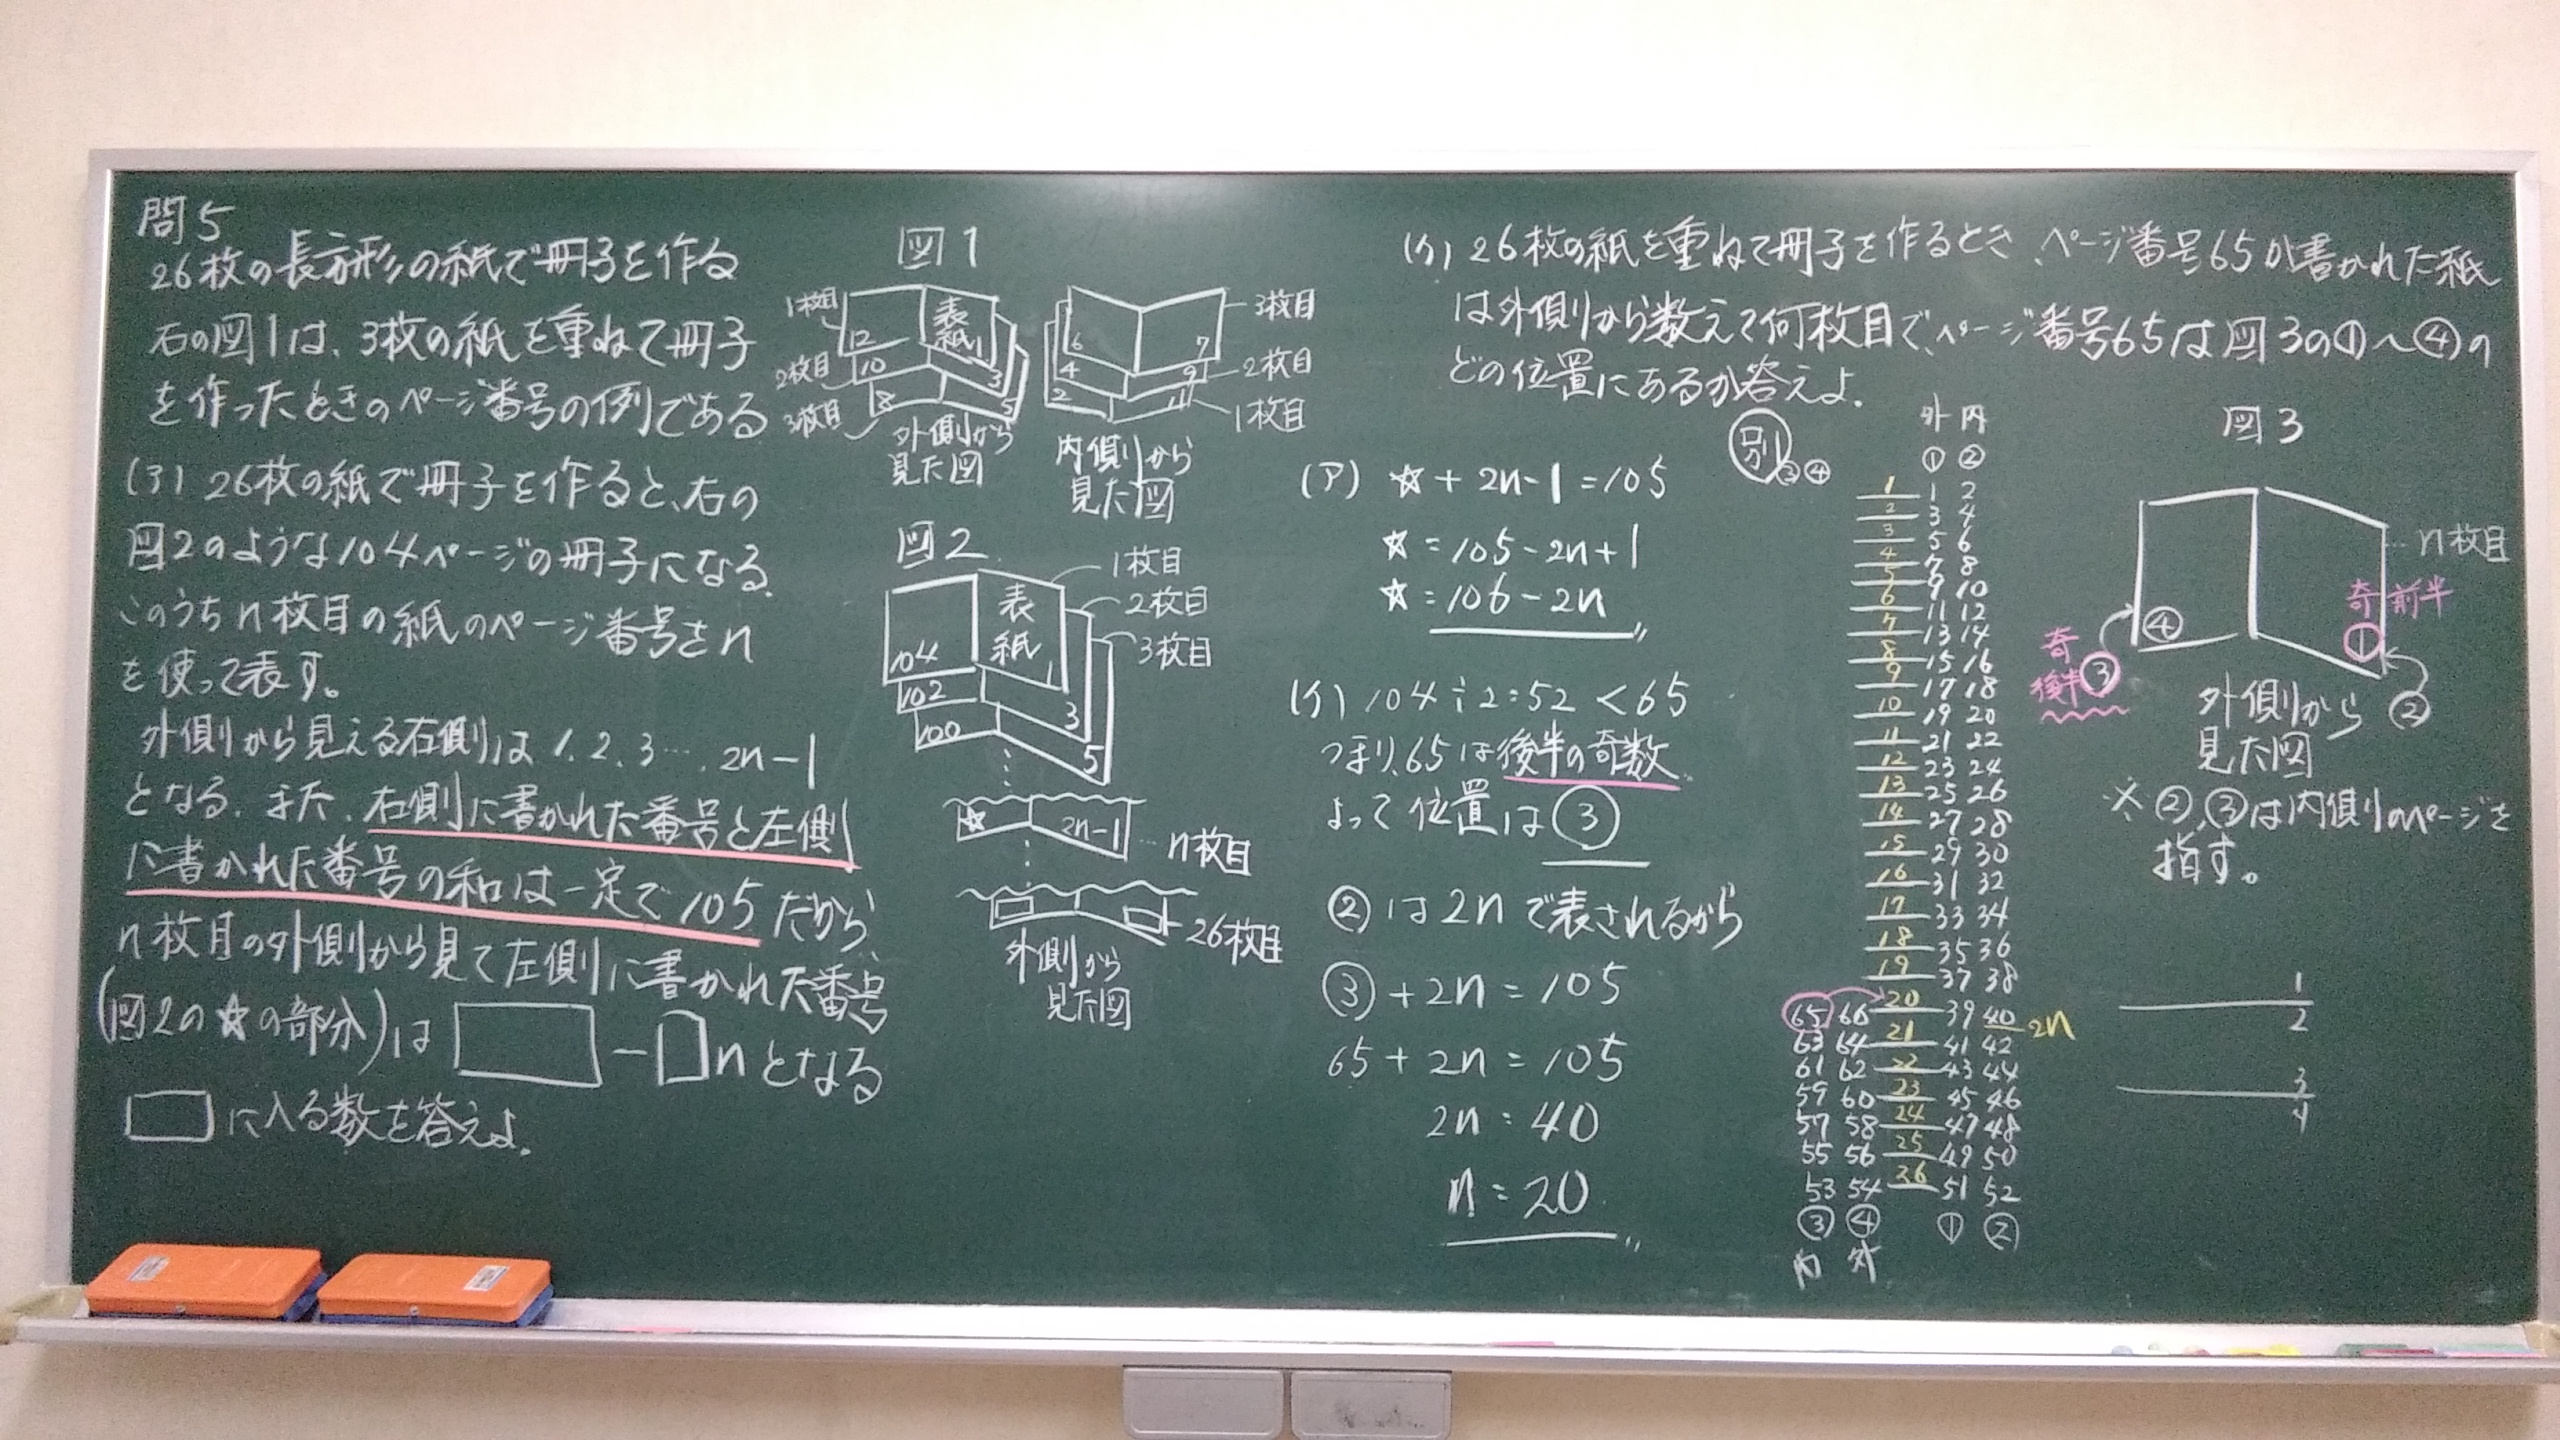 問5
26枚の長方形の紙で冊子を作る
右の図1は、3枚の紙を重ねて冊子
を作ったときのページ番号の例である
(ア) 26枚の紙で冊子を作ると、右の
図2のような104ページの冊子になる。
このうちn枚目の紙のページ番号をn
を使って表す。
外側から見える右側は 1, 2, 3 … , 2n-1
となる。また、右側に書かれた番号と左側
に書かれた番号の和は一定で105だから、
n枚目の外側から見て左側に書かれた番号
(図2の☆の部分)は □-□nとなる
□に入る数を答えよ。
図1
1枚目
2枚目
3枚目
12
10
8
表紙
1
3
5
外側から
見た図
6
4
2
7
9
11
3枚目
2枚目
1枚目
内側から
見た図
図2
1枚目
2枚目
3枚目
表紙
104
102
100
1
3
5
☆
2n-1
n枚目
26枚目
外側から
見た図
(イ) 26枚の紙を重ねて冊子を作るとき、ページ番号65が書かれた紙
は外側から数えて何枚目で、ページ番号65は図3の①〜④の
どの位置にあるか答えよ。
(ア) ☆+2n-1=105
☆=105-2n+1
☆=106-2n
(イ) 104÷2=52<65
つまり、65は後半の奇数
よって位置は③
②は2nで表されるから
③+2n=105
65+2n=105
2n=40
n=20
別
③④
外 内
① ②
1 1 2
2 3 4
3 5 6
4 7 8
5 9 10
6 11 12
7 13 14
8 15 16
9 17 18
10 19 20
11 21 22
12 23 24
13 25 26
14 27 28
15 29 30
16 31 32
17 33 34
18 35 36
19 37 38
65 66 20 39 40 2n
63 64 21 41 42
61 62 22 43 44
59 60 23 45 46
57 58 24 47 48
55 56 25 49 50
53 54 26 51 52
③ ④ ① ②
内 外
図3
n枚目
奇 前半
①
④
奇
後半③
②
外側から
見た図
※②,③は内側のページを
指す。
1
2
3
4